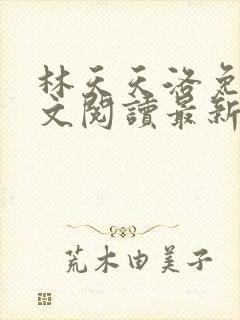 林天天洛免
文閱讀最新
荒木由美子